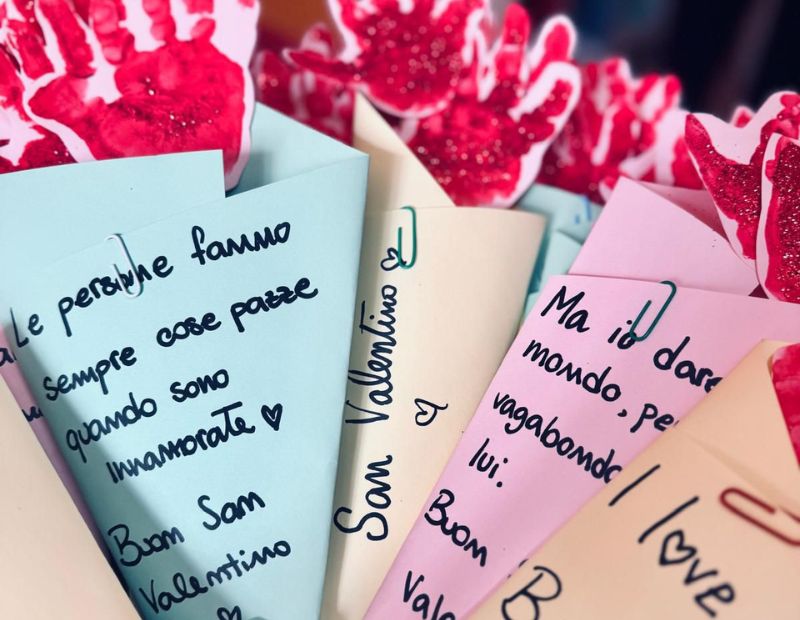 Le persone fanno
sempre cose pazze
quando sono
innamorate ♡
Buon San
Valentino
♡
San Valentino ♡
♡
Ma io
mondo,
lui.
Buon
I love